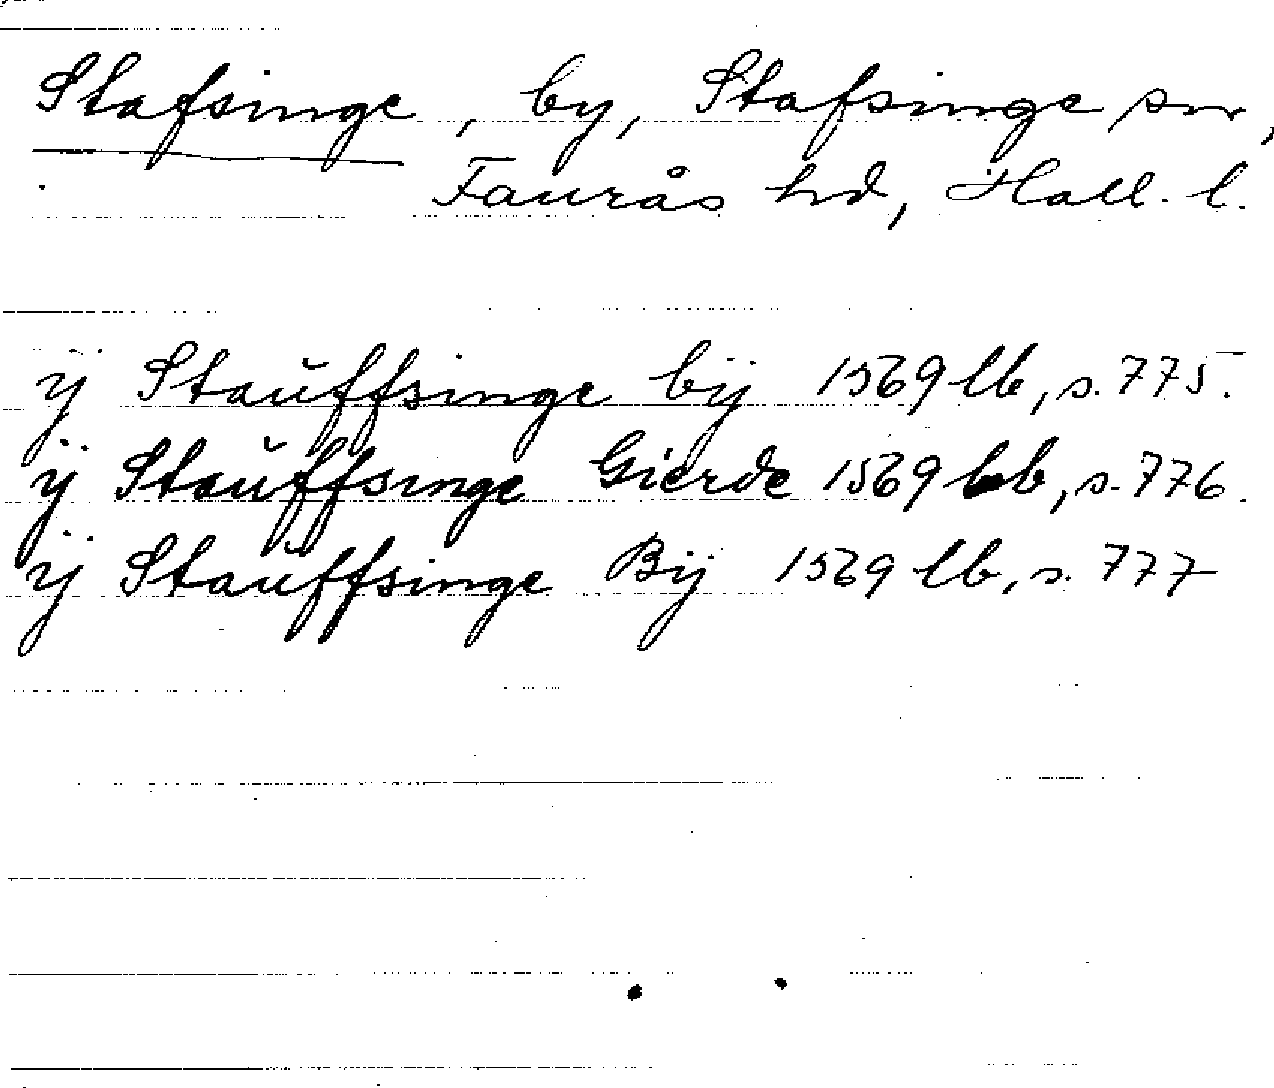 Stafsinge, by, Stafsinge sn,
Faurås hd, Hall. l.
ÿ Staŭffsinge bÿ 1569 lb, s. 775.
ÿ Staŭffsinge Gierde 1569 lb, s. 776.
ÿ Staŭffsinge Bÿ 1569 lb, s. 777